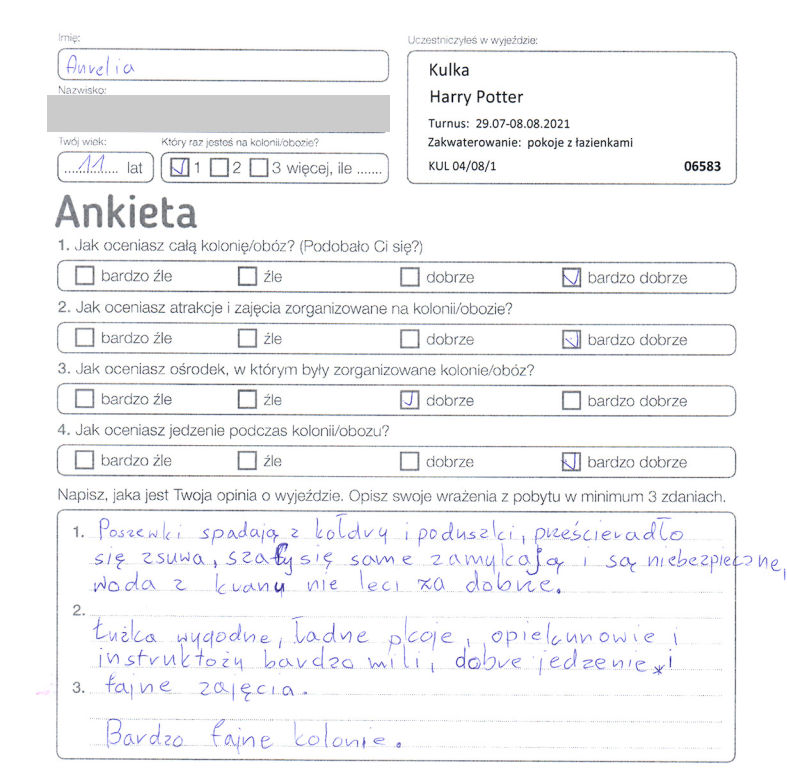 Imię:
Aurelia
Nazwisko:
Twój wiek:
11 lat
Który raz jesteś na kolonii/obozie?
1 2 3 więcej, ile .......
Uczestniczyłeś w wyjeździe:
Kulka
Harry Potter
Turnus: 29.07-08.08.2021
Zakwaterowanie: pokoje z łazienkami
KUL 04/08/1 06583
Ankieta
1. Jak oceniasz całą kolonię/obóz? (Podobało Ci się?)
bardzo źle źle dobrze bardzo dobrze
2. Jak oceniasz atrakcje i zajęcia zorganizowane na kolonii/obozie?
bardzo źle źle dobrze bardzo dobrze
3. Jak oceniasz ośrodek, w którym były zorganizowane kolonie/obóz?
bardzo źle źle dobrze bardzo dobrze
4. Jak oceniasz jedzenie podczas kolonii/obozu?
bardzo źle źle dobrze bardzo dobrze
Napisz, jaka jest Twoja opinia o wyjeździe. Opisz swoje wrażenia z pobytu w minimum 3 zdaniach.
1. Poszewki spadają z kołdry i poduszki, prześcieradło
się zsuwa, szafy się same zamykają i są niebezpieczne,
woda z kranu nie leci za dobrze.
2.
Łużka wygodne, ładne pkoje, opiekunowie i
instruktoży bardzo mili, dobre jedzenie i
3. fajne zajęcia.
Bardzo fajne kolonie.